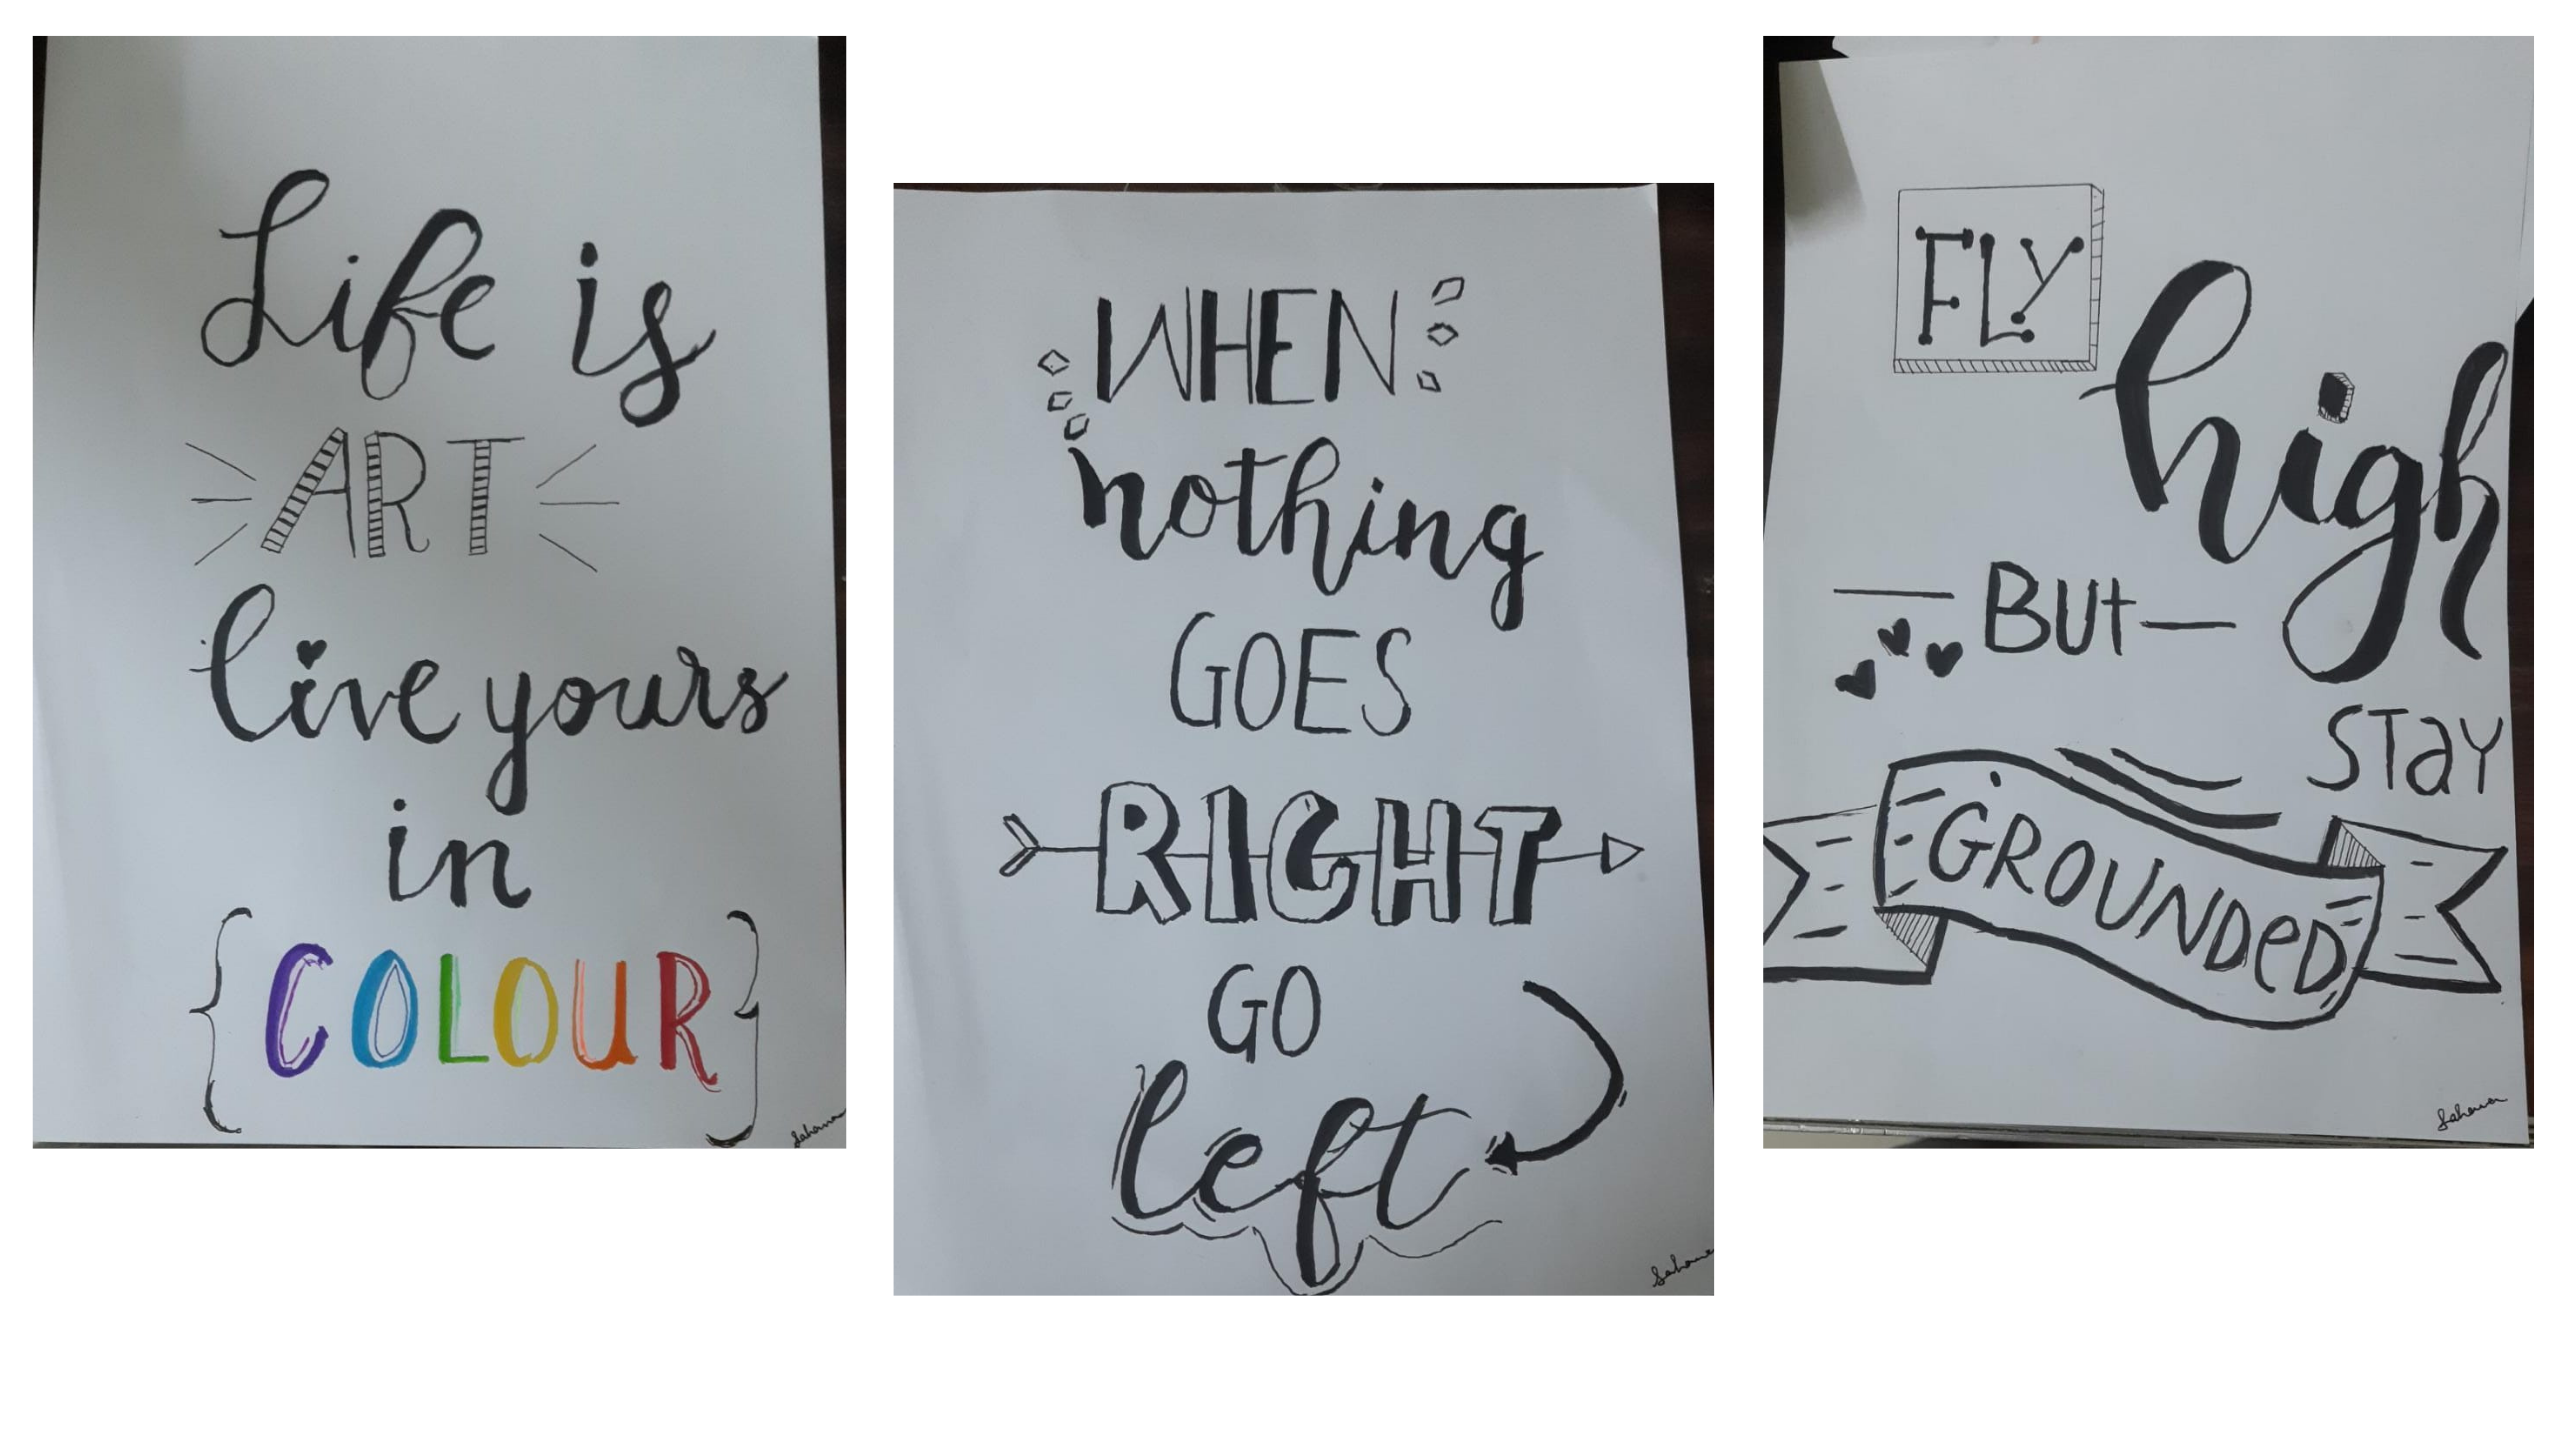 Life is
ART
live yours
in
{COLOUR}
Sahana
WHEN
nothing
GOES
RIGHT
GO
left
Sahana
FLY
high
But
STaY
GROUNDeD
Sahana